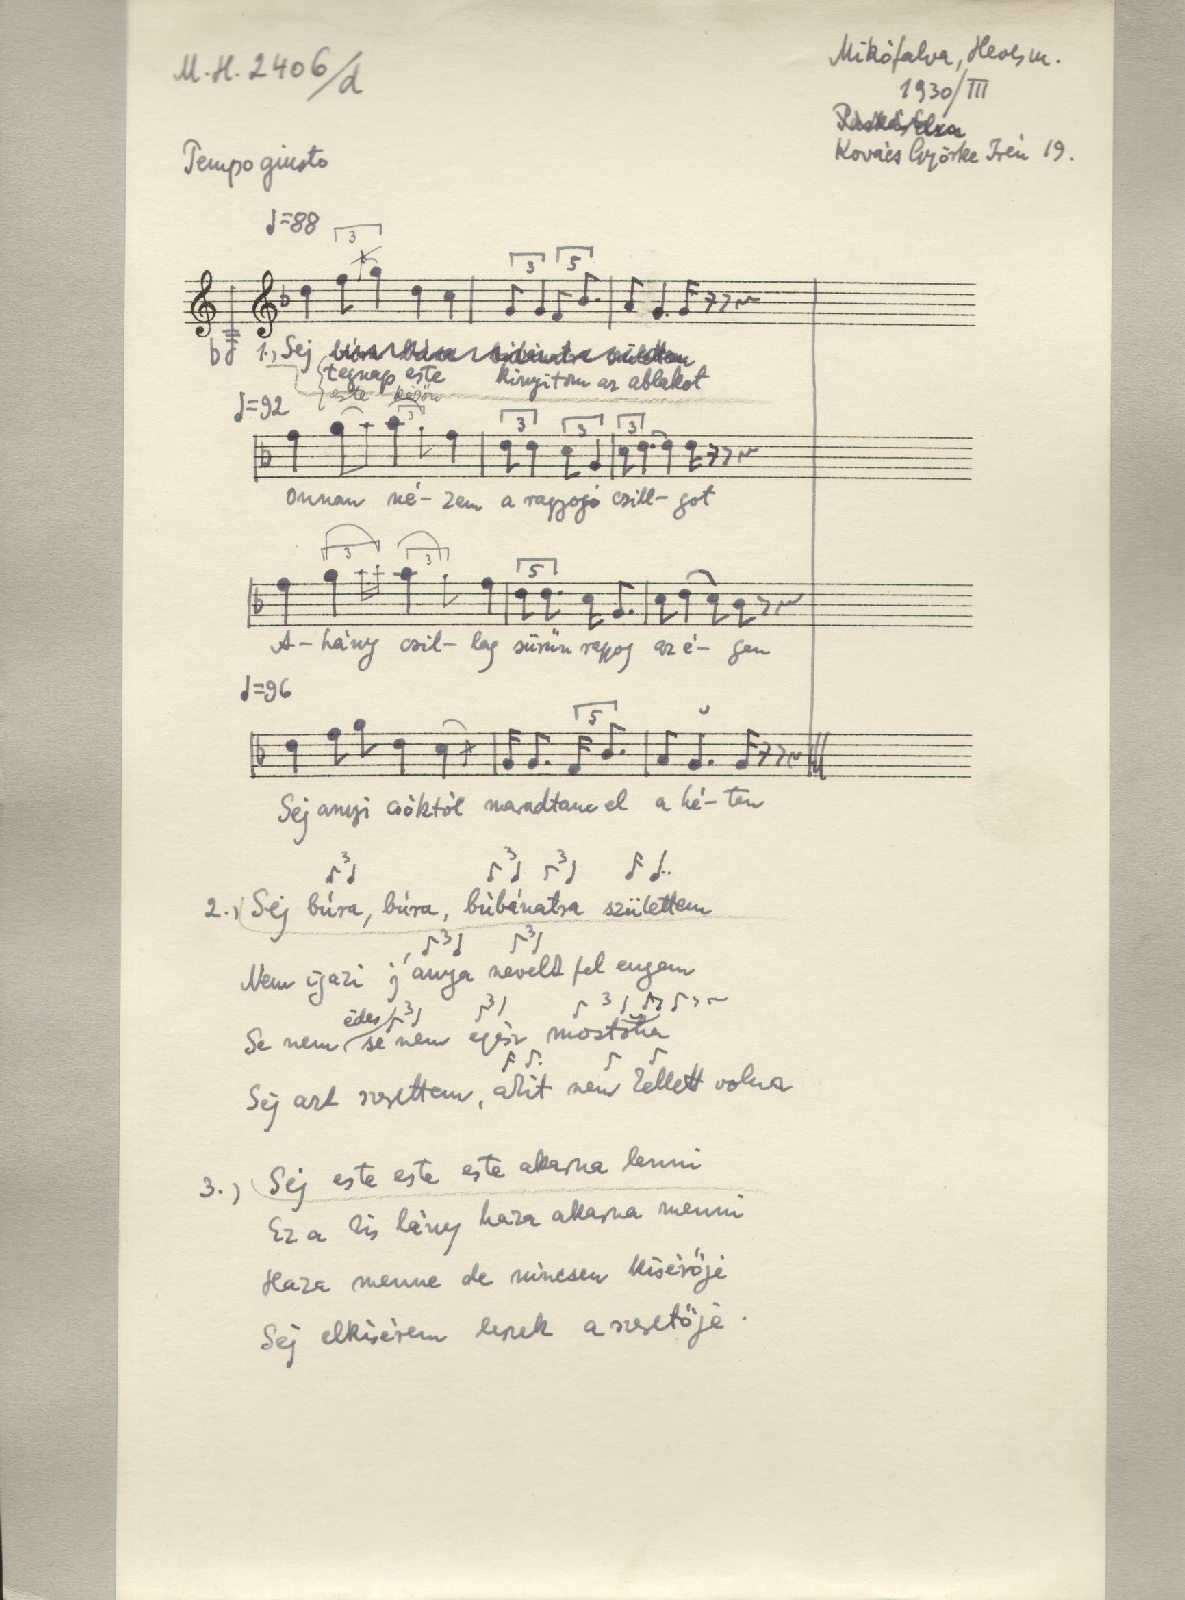 M.H. 2406/d
Mikófalva, Heves m.
1930/III
Kovács Györke Irén 19.
Tempo giusto
♩=88
3 3 5
1., Sej búra búra búbánatra születtem
tegnap este kinyitom az ablakot
este késön
♩=92
3 3 3 3
Onnan né- zem a ragyogó csill- got
3 3 5
A- hány csil- lag sürün ragyog az é- gen
♩=96
5
Sej anyi csóktól maradtam el a hé- ten
3 3 3
2., Sej búra, búra, búbánatra születtem
3 3
Nem igazi j' anya nevelt fel engem
édes 3 3 3
Se nem se nem egész mostoha
Sej azt szerettem, akit nem kellett volna
3., Sej este este este akarna lenni
Ez a kis lány haza akarna menni
Haza menne de nincsen kisérője
Sej elkisérem leszek a szeretője.